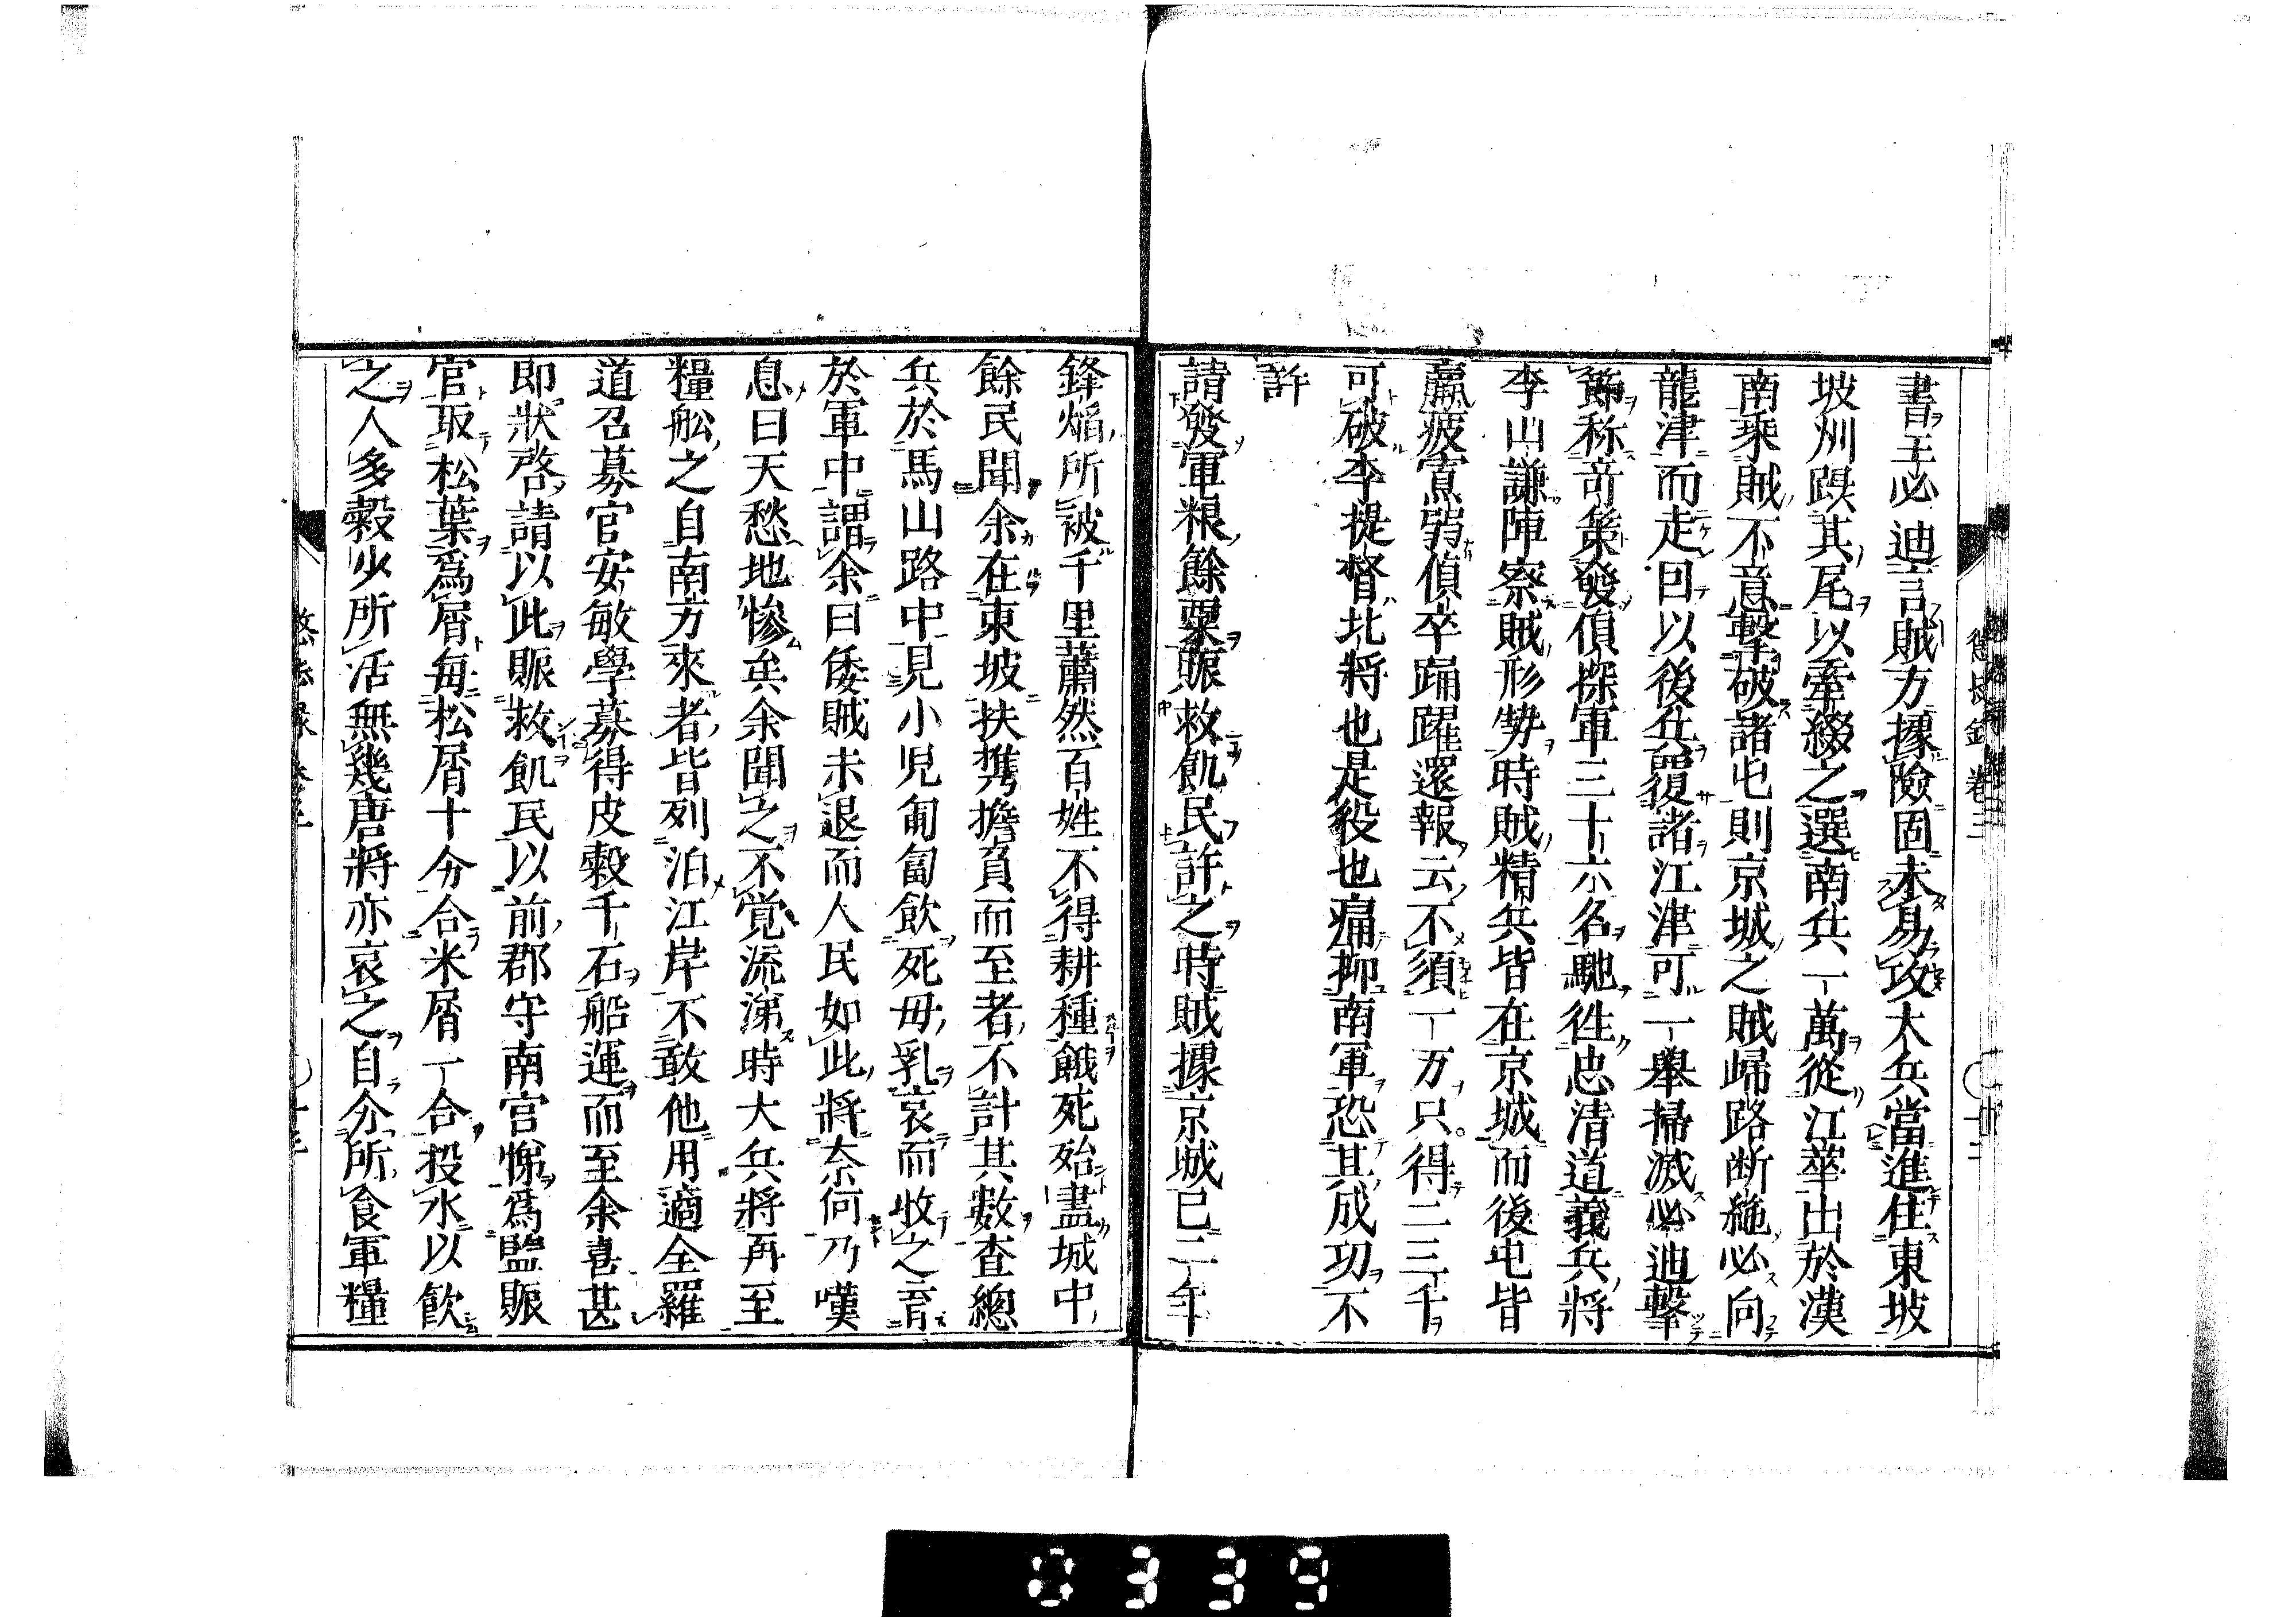 懲毖録 卷三
書王必迪言賊方據險固未易攻大兵當進住東坡
坡州躡其尾以牽綴之選南兵一萬從江華出於漢
南乘賊不意擊破諸屯則京城之賊歸路断絶必向
龍津而走回以後兵覆諸江津可一舉掃滅必迪擊
節称竒策發偵探軍三十六名馳徃忠清道義兵將
李山謙陣察賊形勢時賊精兵皆在京城而後屯皆
羸疲寡弱偵卒踊躍還報云不須一万只得二三千
可破李提督北将也是役也痛抑南軍恐其成功不
許
請發軍粮餘粟賑救飢民許之時賊據京城已二年
鋒焰所被千里蕭然百姓不得耕種餓死殆盡城中
餘民聞余在東坡扶携擔負而至者不計其數査總
兵於馬山路中見小児匍匐飲死母乳哀而收之育
於軍中謂余曰倭賊未退而人民如此將奈何乃嘆
息曰天愁地慘矣余聞之不覚流涕時大兵將再至
糧舩之自南方來者皆列泊江岸不敢他用適全羅
道召募官安敏學募得皮穀千石船運而至余喜甚
即狀啓請以此賑救飢民以前郡守南宮悌爲監賑
官取松葉爲屑每松屑十分合米屑一合投水以飲
之人多穀少所活無幾唐將亦哀之自分所食軍糧
0339